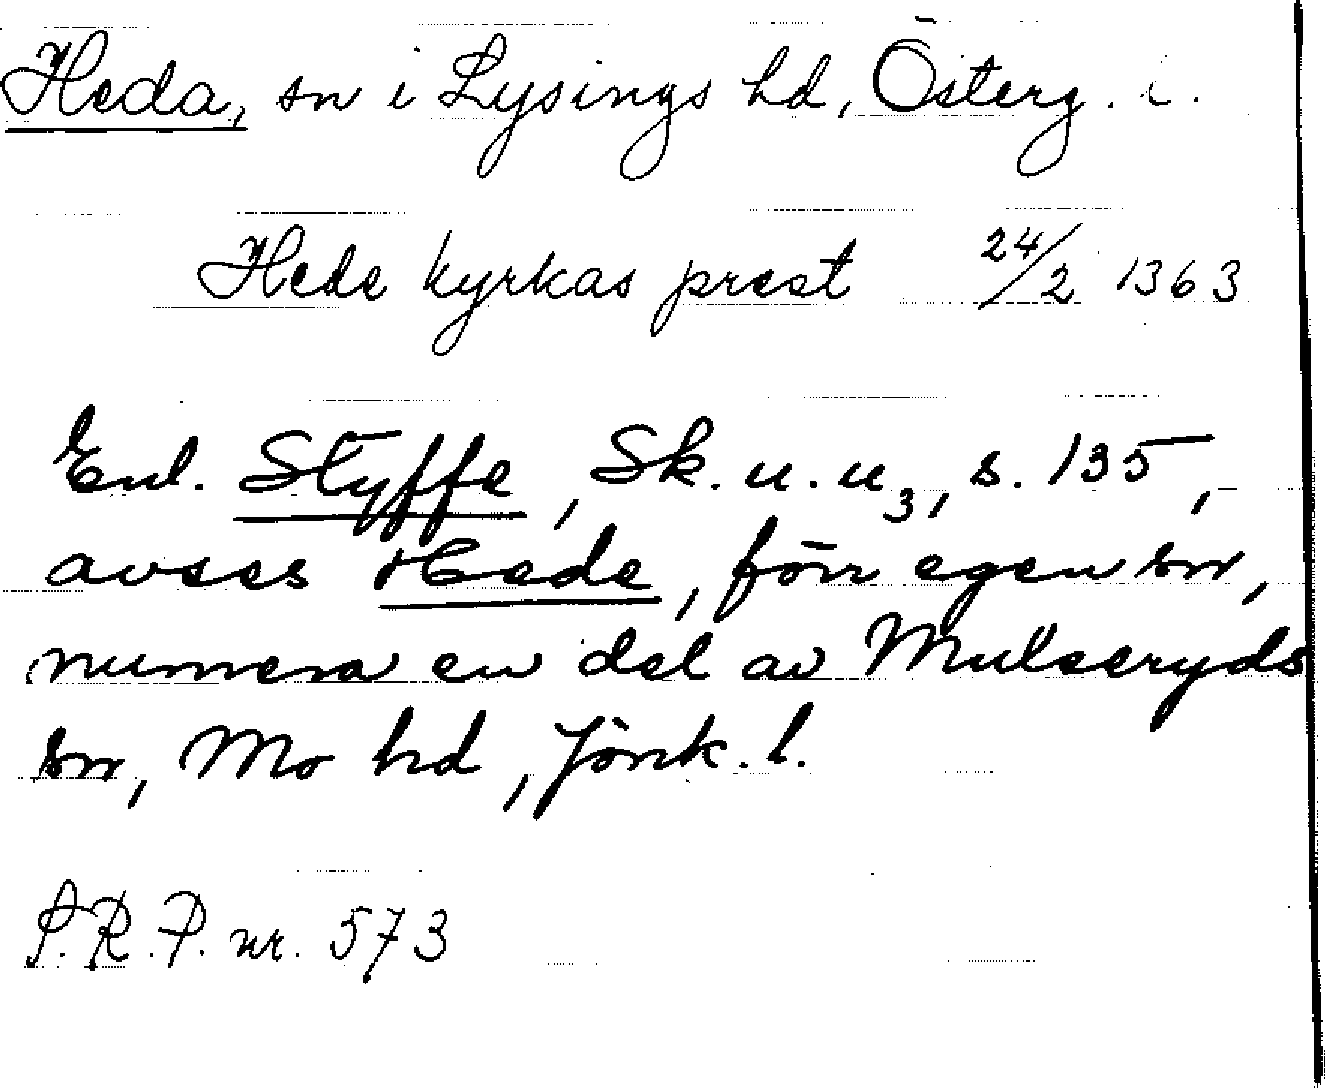 Heda, sn i Lysings hd, Österg. l.
Hede kyrkas prest 24/2 1363
Enl. Styffe, Sk. u. u3, s. 135,
avses Hede, förr egen sn,
numera en del av Mulseryds
sn, Mo hd, Jönk. l.
S.R.P. nr. 573